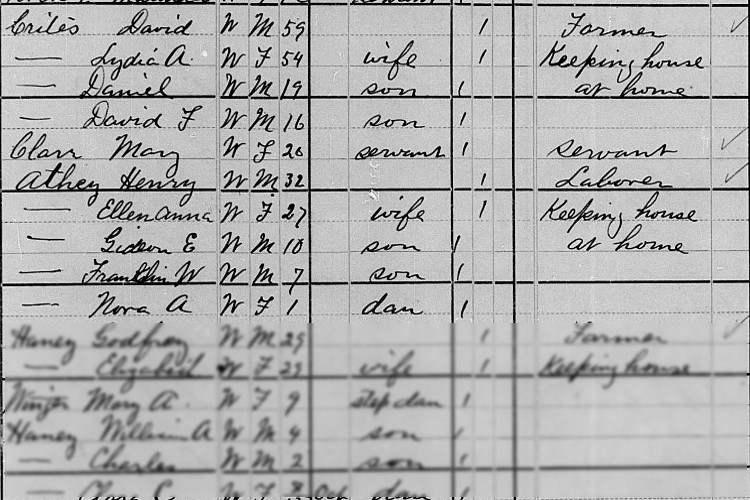 Crites David W M 59 1 Farmer
— Lydia A. W F 54 wife 1 Keeping house
— Daniel W M 19 son 1 at home
— David F W M 16 son 1
Mary W F 20 servant 1 servant
Athey Henry W M 32 1 Laborer
— Ellen Anna W F 27 wife 1 Keeping house
— Gideon E W M 10 son 1 at home
— Franklin W W M 7 son 1
— Nora A W F 1 dau 1
Haney Godfrey W M 29 1 Farmer
— Elizabeth W F 29 wife 1 Keeping house
Mary A. W F 9 step dau 1
Haney William A W M 4 son 1
— Charles W M 2 son 1
W F dau 1